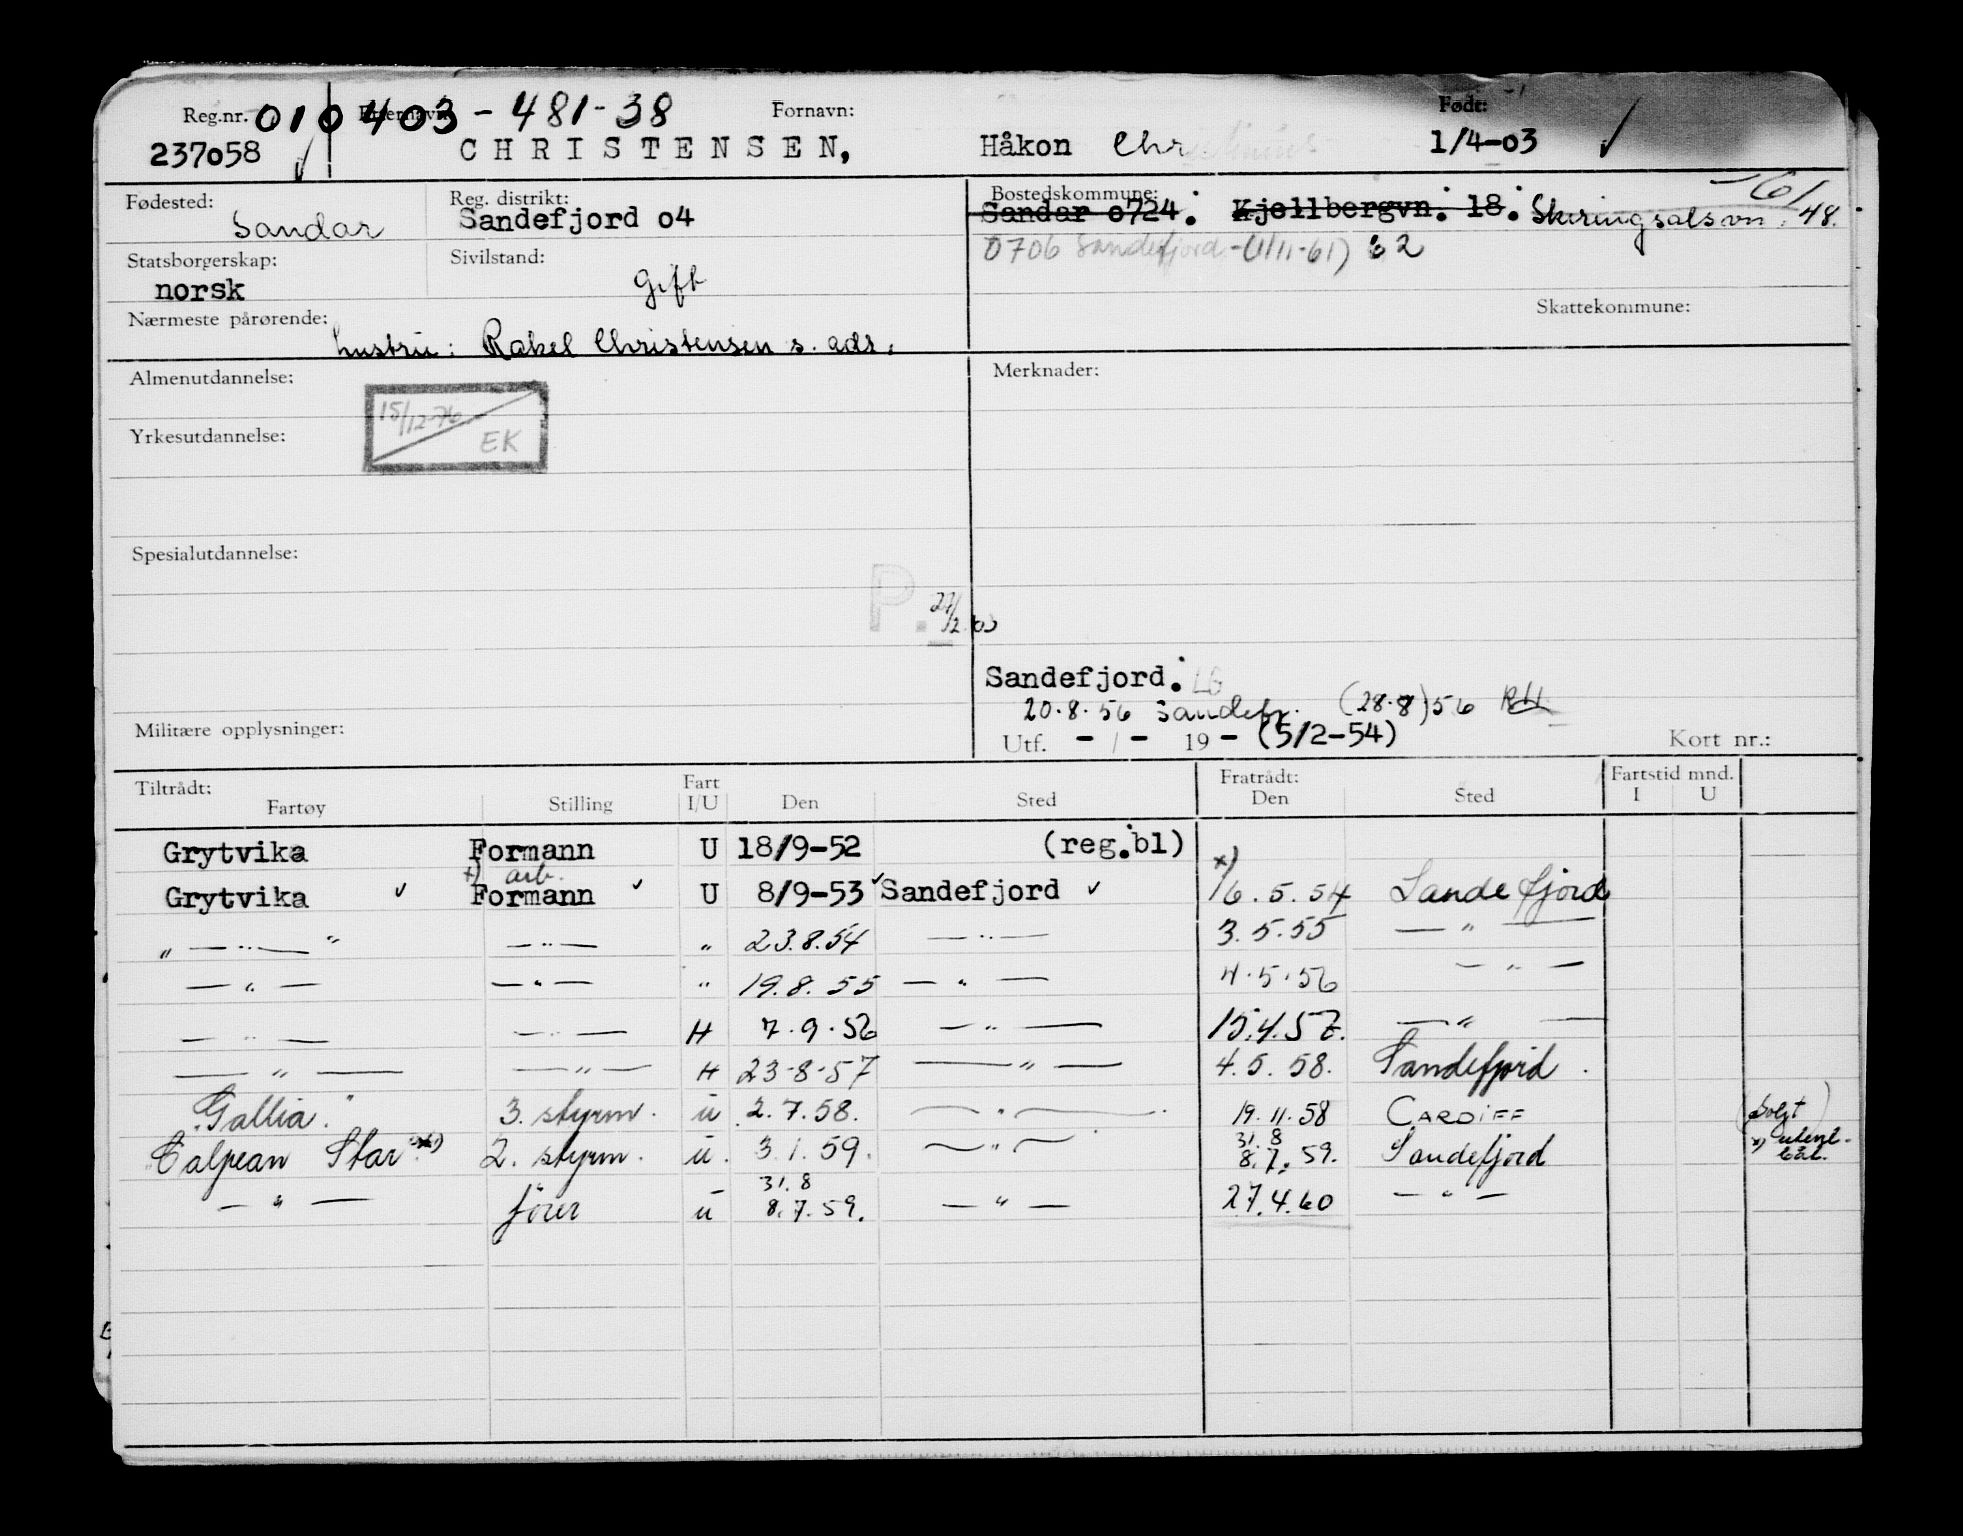 Reg.nr. 010403-481-38 Fornavn: Født:
237058 CHRISTENSEN, Håkon Chr 1/4-03
Fødested: Sandar Reg. distrikt: Sandefjord o4
Bostedskommune: Sandar o724. Kjellbergvn. 18. Skiringsalsvn. 48.
0706 Sandefjord - (1/11-61) 62
Statsborgerskap: norsk Sivilstand: Gift
Nærmeste pårørende: hustru: Rakel Christensen s. adr.
Skattekommune:
Almenutdannelse: Merknader:
15/12-76 EK
Yrkesutdannelse:
Spesialutdannelse:
P.
Sandefjord. LG
20.8.56 Sandefj. (28.8) 56 RH
Militære opplysninger: Utf. - / - 19 - (5/2-54) Kort nr.:
Tiltrådt: Fart Fratrådt: Fartstid mnd.
Fartøy Stilling I/U Den Sted Den Sted I U
Grytvika Formann U 18/9-52 (reg.bl)
x) arb. x)
Grytvika Formann U 8/9-53 Sandefjord 16.5.54 Sandefjord
" — " — " — " — " 23.8.54 — " — 3.5.55 — " —
— " — — " — " 19.8.55 — " — 4.5.56 — " —
— " — — " — H 7.9.56 — " — 15.4.57. — " —
— " — — " — H 23-8-57 — " — 4.5.58. Sandefjord.
"Gallia." 3. styrm. u 2.7.58. — " — 19.11.58 CARDIFF (Solgt)
31.8
"Calpean Star" x) 2. styrm. u. 3.1.59. — " — 8.7.59. Sandefjord x) utenl. båt.
31.8
— " — fører u 8.7.59. — " — 27.4.60 — " —